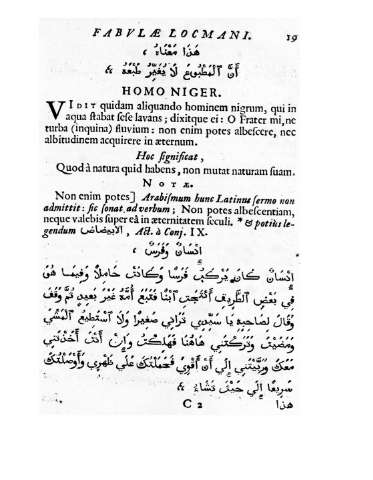 FABULÆ LOCMANI. 19
هَذَا مَعْنَاهُ
أَنَّ ٱلْمَطْبُوعَ لَا يُغَيِّرُ طَبْعَهُ
HOMO NIGER.
VIDIT quidam aliquando hominem nigrum, qui in
aqua stabat sese lavans; dixitque ei: O Frater mi, ne
turba (inquina) fluvium: non enim potes albescere, nec
albitudinem acquirere in æternum.
Hoc significat,
Quod à natura quid habens, non mutat naturam suam.
NOTÆ.
Non enim potes] Arabismum hunc Latinus sermo non
admittit: sic sonat ad verbum; Non potes albescentiam,
neque valebis super eâ in æternitatem seculi. * & potius le-
gendum الابيضاض, Act. à Conj. IX.
إِنْسَانٌ وَفَرَسٌ
إِنْسَانٌ كَانَ يَرْكَبُ فَرَسًا وَكَانَتْ حَامِلًا وَفِيمَا هُوَ
فِي بَعْضِ ٱلطَّرِيقِ أَنْتَجَتِ ٱبْنًا فَتَبِعَ أُمَّهُ غَيْرَ بَعِيدٍ ثُمَّ وَقَفَ
وَقَالَ لِصَاحِبِهِ يَا سَيِّدِي تَرَانِي صَغِيرًا وَلَا أَسْتَطِيعُ ٱلْمَشْيَ
وَمَضَيْتَ وَتَرَكْتَنِي هَاهُنَا فَهَلَكْتُ وَإِنْ أَنْتَ أَخَذْتَنِي
مَعَكَ وَرَبَّيْتَنِي إِلَى أَنْ أَقْوَى فَحَمَلْتُكَ عَلَى ظَهْرِي وَأَوْصَلْتُكَ
سَرِيعًا إِلَى حَيْثُ تَشَاءُ
C 2 هذا